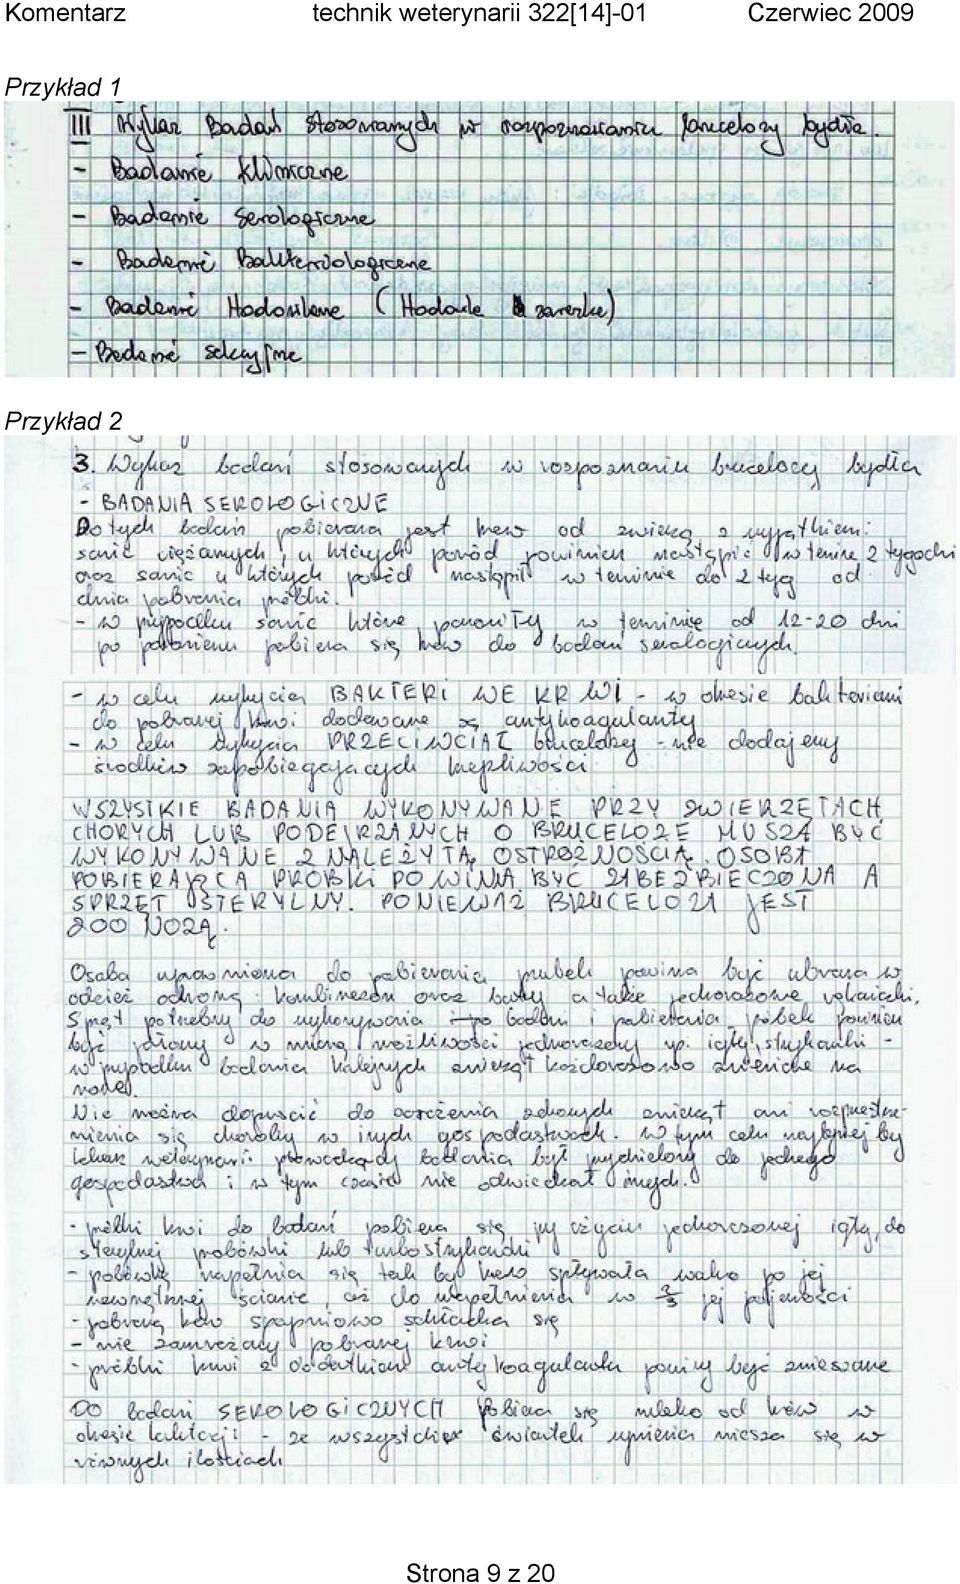 Komentarz technik weterynarii 322[14]-01 Czerwiec 2009
Przykład 1
III Wykaz Badań stosowanych w rozpoznawaniu brucelozy bydła.
- Badanie kliniczne
- Badanie Serologiczne
- Badanie Bakteriologiczne
- Badanie Hodowlane ( Hodowle zarazka)
- Badanie sekcyjne
Przykład 2
3. Wykaz badań stosowanych w rozpoznaniu brucelozy bydła
- BADANIA SEROLOGICZNE
Do tych badań pobierana jest krew od zwierząt z wyjątkiem:
samic ciężarnych, u których poród powinien nastąpić w terminie 2 tygodni
oraz samic u których poród nastąpił w terminie do 2 tyg od
dnia pobrania próbki.
- w przypadku samic które poroniły w terminie od 12-20 dni
po poronieniu pobiera się krew do badań serologicznych.
- w celu wykrycia BAKTERI WE KRWI - w okresie bakteriemi
do pobranej krwi dodawane są antykoagulanty
- w celu wykrycia PRZECIWCIAŁ brucelozy - nie dodajemy
środków zapobiegających krzepliwości
WSZYSTKIE BADANIA WYKONYWANE PRZY ZWIERZĘTACH
CHORYCH LUB PODEJRZANYCH O BRUCELOZE MUSZĄ BYĆ
WYKONYWANE Z NALEŻYTĄ OSTROŻNOŚCIĄ. OSOBA
POBIERAJĄCA PRÓBKI POWINNA BYĆ ZABEZPIECZONA A
SPRZĘT STERYLNY. PONIEWAŻ BRUCELOZA JEST
ZOONOZĄ.
Osoba uprawniona do pobierania próbek powina być ubrana w
odzież ochroną: kombinezon oraz buty a także jednorazowe rękawiczki.
Sprzęt potrzebny do wykonywania badań i pobierania próbek powinien
być jałowy w miarę możliwości jednorazowy np. igły, strzykawki -
w przypadku badania kolejnych zwierząt każdorazowo zmieniane na
nowe.
Nie można dopuścić do zarażenia zdrowych zwierząt ani rozprestrze-
nienia się choroby w inych gospodarstwach. W tym celu najlepiej by
lekarz weterynarii prowadzący badania był wydzielony do jednego
gospodarstwa i w tym czasie nie odwiedzał innych.
- próbki krwi do badań pobiera się przy użyciu jednorazowej igły, do
sterylnej probówki lub tubostrzykawki
- probówkę napełnia się tak by krew spływała wolno po jej
wewnętrznej ścianie, aż do wypełnienia w 2/3 jej pojemości
- pobraną krew stopniowo schładza się
- nie zamrażamy pobranej krwi
- próbki krwi z dodatkiem antykoagulanta powiny być zmieszane
DO badań SEROLOGICZNYCH pobiera się mleko od krów w
okresie laktacji - ze wszystkich ćwiartek wymienia miesza się w
równych ilościach
Strona 9 z 20